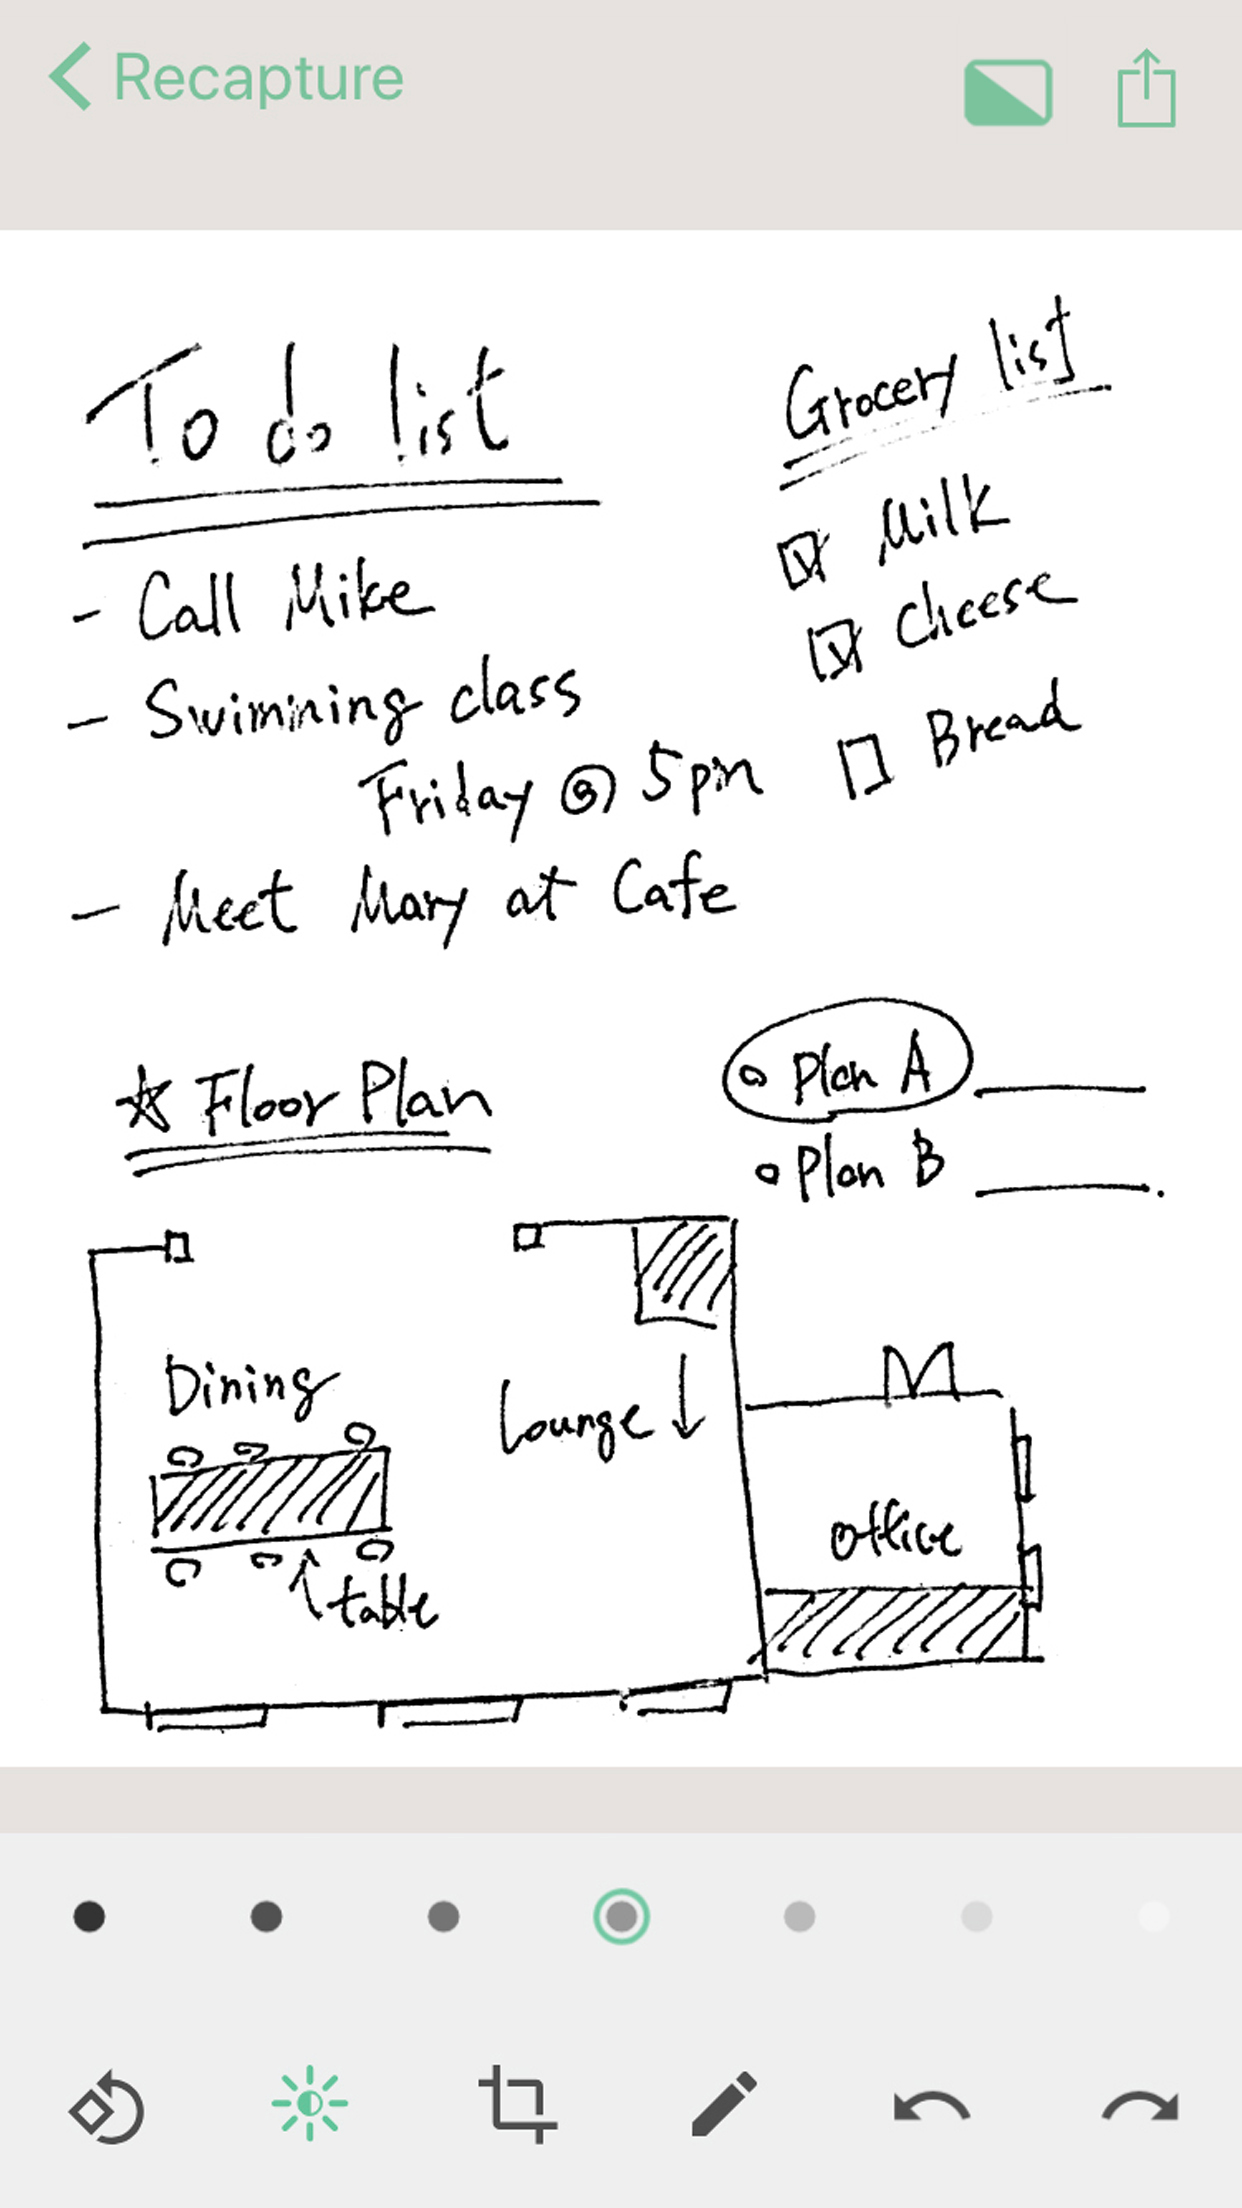 Recapture
To do list
- Call Mike
- Swimming class
Friday @ 5pm
- Meet Mary at Cafe
Grocery list
☑ Milk
☑ Cheese
☐ Bread
☆ Floor Plan
◦ Plan A
◦ Plan B
Dining
Lounge ↓
office
↑ table